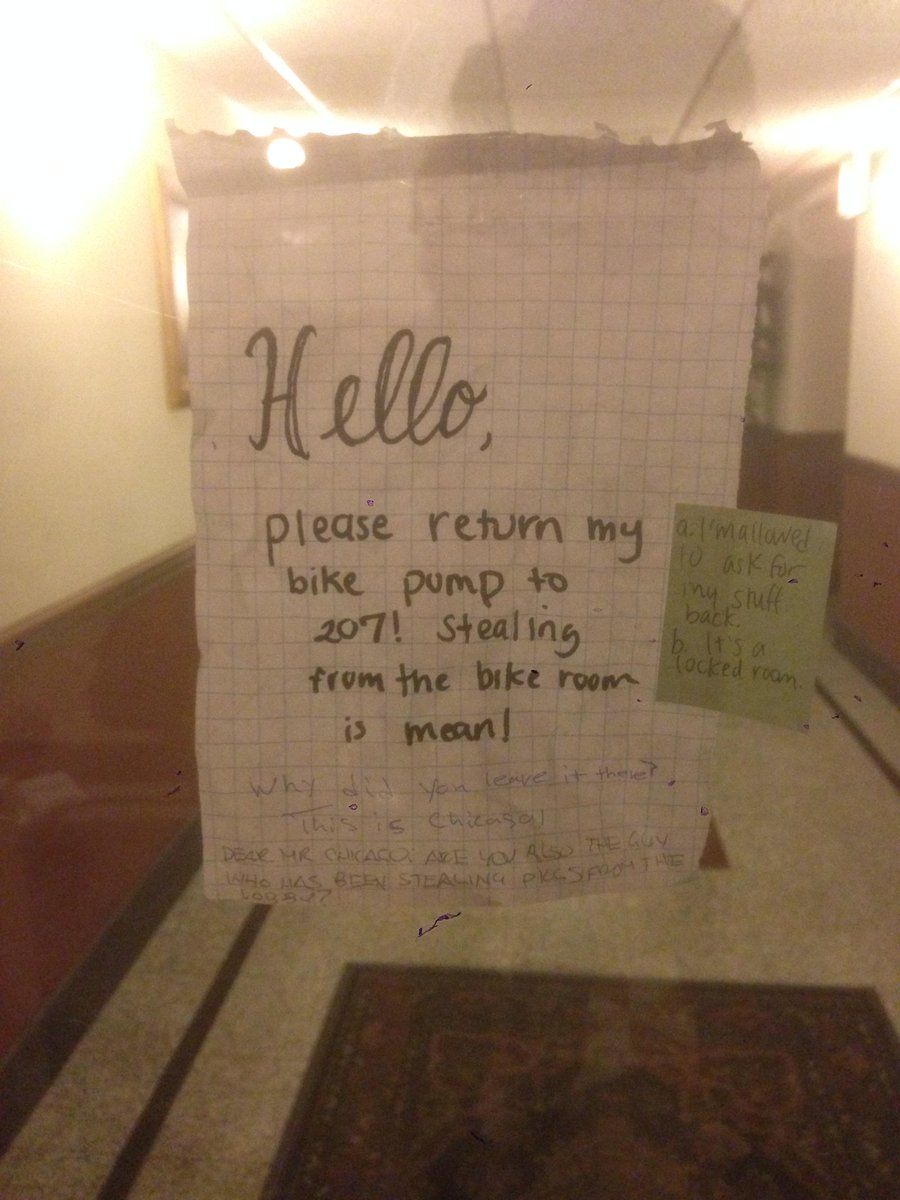 Hello,
please return my
bike pump to
207! Stealing
from the bike room
is mean!
Why did you leave it there?
This is Chicago!
DEAR MR CHICAGO: ARE YOU ALSO THE GUY
WHO HAS BEEN STEALING PKGS FROM THE
LOBBY?
a. I'm allowed
to ask for
my stuff
back.
b. It's a
locked room.